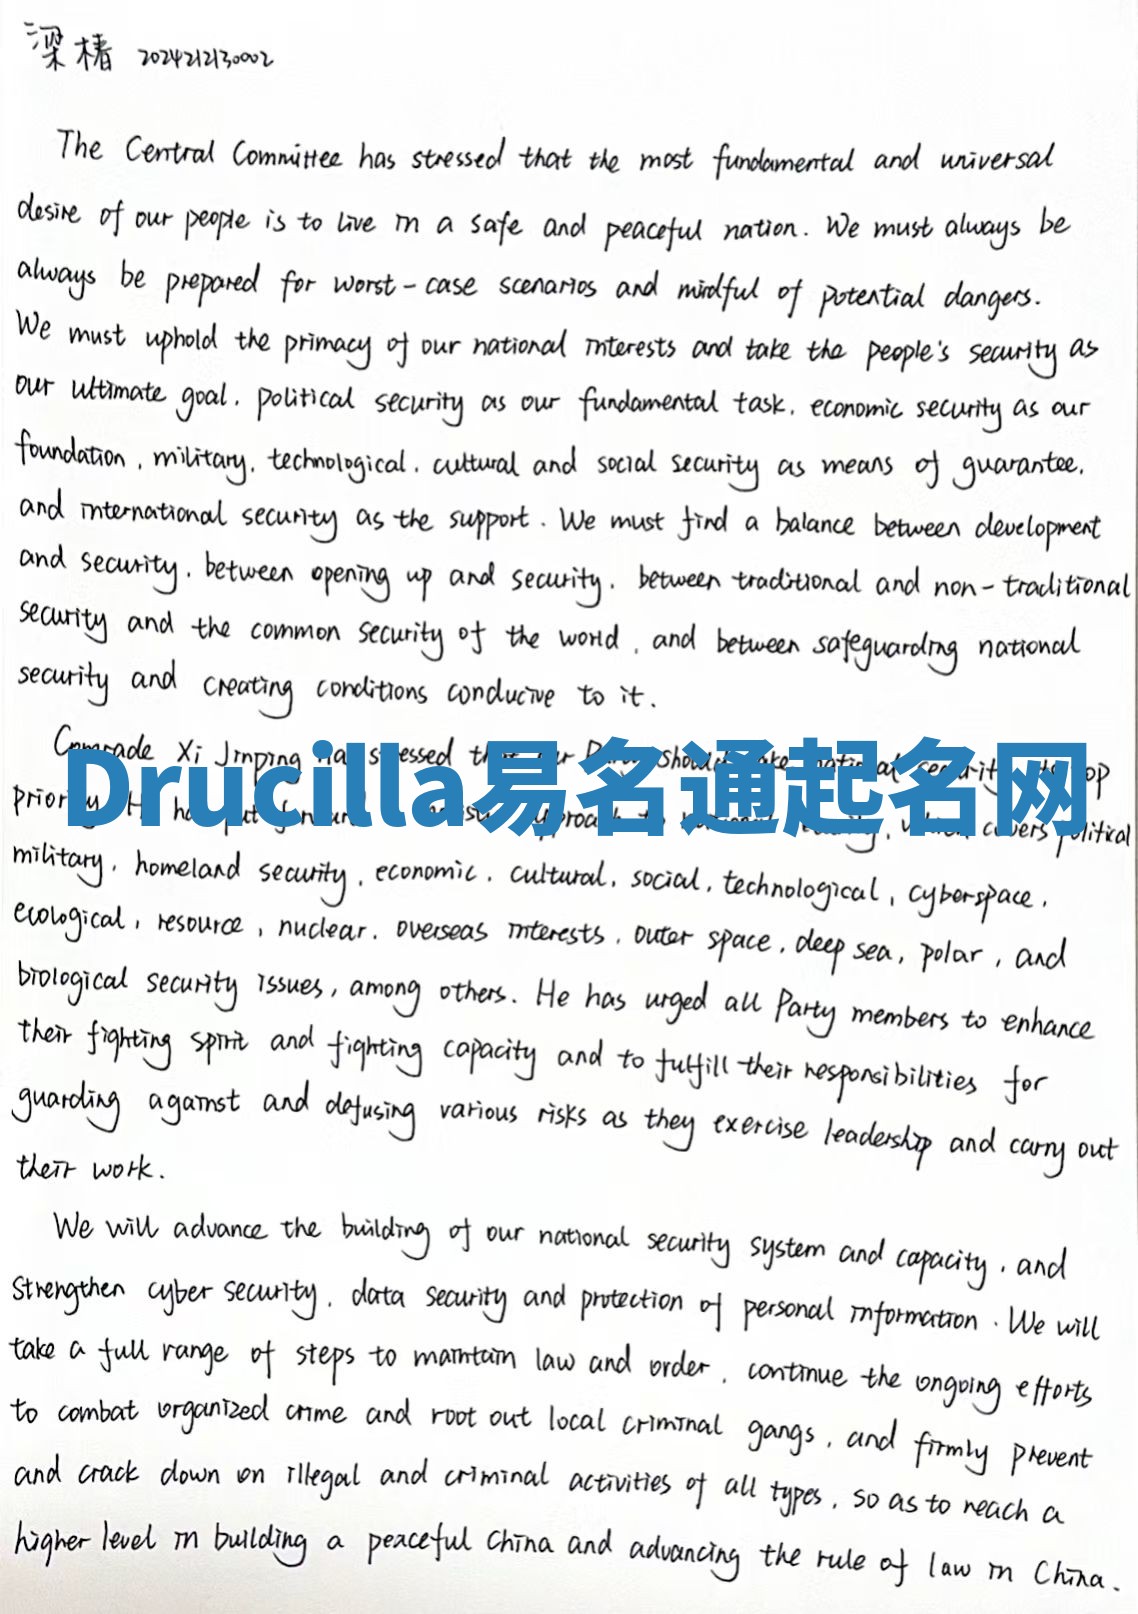 梁椿 2024212130002
The Central Committee has stressed that the most fundamental and universal
desire of our people is to live in a safe and peaceful nation. We must always be
always be prepared for worst-case scenarios and mindful of potential dangers.
We must uphold the primacy of our national interests and take the people's security as
our ultimate goal, political security as our fundamental task, economic security as our
foundation, military, technological, cultural and social security as means of guarantee,
and international security as the support. We must find a balance between development
and security, between opening up and security, between traditional and non-traditional
security and the common security of the world, and between safeguarding national
security and creating conditions conducive to it.
Comrade Xi Jinping has stressed that our Party should
Drucilla易名通起名网
covers political
military, homeland security, economic, cultural, social, technological, cyberspace,
ecological, resource, nuclear, overseas interests, outer space, deep sea, polar, and
biological security issues, among others. He has urged all Party members to enhance
their fighting spirit and fighting capacity and to fulfill their responsibilities for
guarding against and defusing various risks as they exercise leadership and carry out
their work.
We will advance the building of our national security system and capacity, and
strengthen cyber security, data security and protection of personal information. We will
take a full range of steps to maintain law and order, continue the ongoing efforts
to combat organized crime and root out local criminal gangs, and firmly prevent
and crack down on illegal and criminal activities of all types, so as to reach a
higher level in building a peaceful China and advancing the rule of law in China.